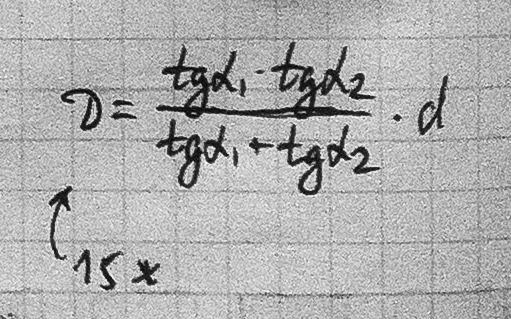 D = (tgα₁ · tgα₂) / (tgα₁ + tgα₂) · d
15 x